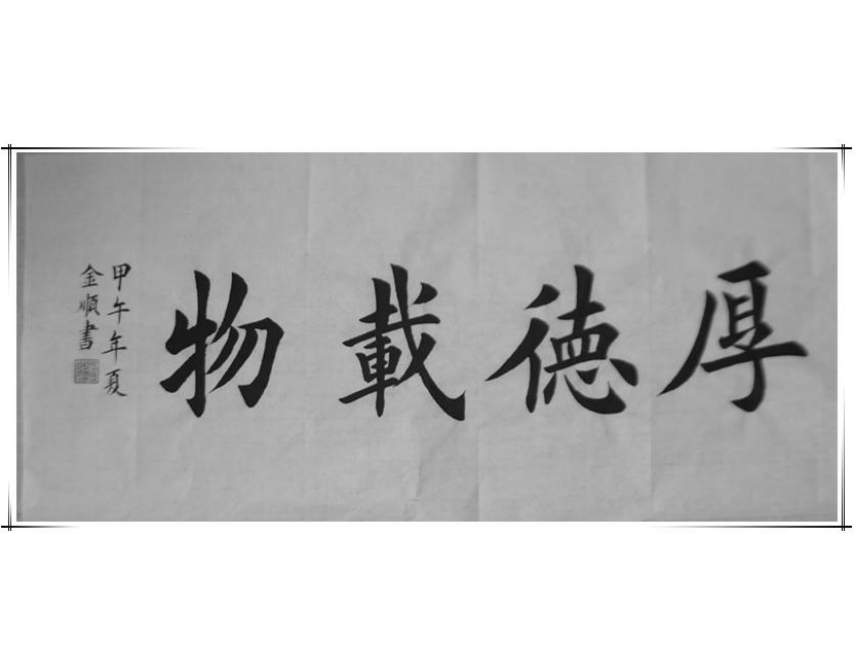 厚德載物
甲午年夏
金順書